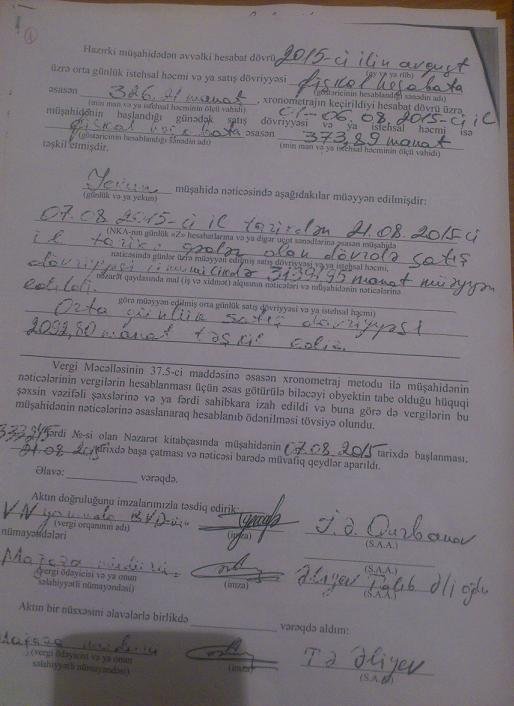 Hazırki müşahidədən əvvəlki hesabat dövrü 2015-ci ilin avqust
(ay və ya rüb)
üzrə orta günlük istehsal həcmi və ya satış dövriyyəsi fiskal hesabata
(göstəricinin hesablandığı sənədin adı)
əsasən 326,21 manat, xronometrajın keçirildiyi hesabat dövrü üzrə
(min man və ya istehsal həcminin ölçü vahidi)
01-06.08.2015-ci il
müşahidənin başlandığı günədək satış dövriyyəsi və ya istehsal həcmi isə
fiskal hesabata əsasən 373,89 manat
(göstəricinin hesablandığı sənədin adı) (min man və ya istehsal həcminin ölçü vahidi)
təşkil etmişdir.
Yekun müşahidə nəticəsində aşağıdakılar müəyyən edilmişdir:
(günlük və ya yekun)
07.08.2015-ci il tarixdən 21.08.2015-ci
(NKA-nın günlük «Z» hesabatlarına və ya digər uçot sənədlərinə əsasən müşahidə
il tarixə qədər olan dövrdə satış
nəticəsində günlər üzrə müəyyən edilmiş satış dövriyyəsi və ya istehsal həcmi,
dövriyyəsi manat müəyyən
nəzarət qaydasında mal (iş və xidmət) alqısının nəticələri və müşahidənin nəticələrinə
edildi.
görə müəyyən edilmiş orta günlük satış dövriyyəsi və ya istehsal həcmi)
Orta günlük satış dövriyyəsi
2092,80 manat təşkil edir.
Vergi Məcəlləsinin 37.5-ci maddəsinə əsasən xronometraj metodu ilə müşahidənin
nəticələrinin vergilərin hesablanması üçün əsas götürülə biləcəyi obyektin tabe olduğu hüquqi
şəxsin vəzifəli şəxslərinə və ya fərdi sahibkara izah edildi və buna görə də vergilərin bu
müşahidənin nəticələrinə əsaslanaraq hesablanıb ödənilməsi tövsiyə olundu.
fərdi №-si olan Nəzarət kitabçasında müşahidənin 07.08.2015 tarixdə başlanması,
21.08.2015 tarixdə başa çatması və nəticəsi barədə müvafiq qeydlər aparıldı.
Əlavə: vərəqdə.
Aktın doğruluğunu imzalarımızla təsdiq edirik:
VN yanında T.Ə. Qurbanov
(vergi orqanının adı) (imza) (S.A.A.)
nümayəndələri
(S.A.A.)
Mağaza müdiri Əliyev Talıb Əli oğlu
(vergi ödəyicisi və ya onun (imza) (S.A.A.)
səlahiyyətli nümayəndəsi)
Aktın bir nüsxəsini əlavələrlə birlikdə vərəqdə aldım:
Mağaza müdiri T Ə Əliyev
(vergi ödəyicisi və ya onun (imza) (S.A.A.)
səlahiyyətli nümayəndəsi)